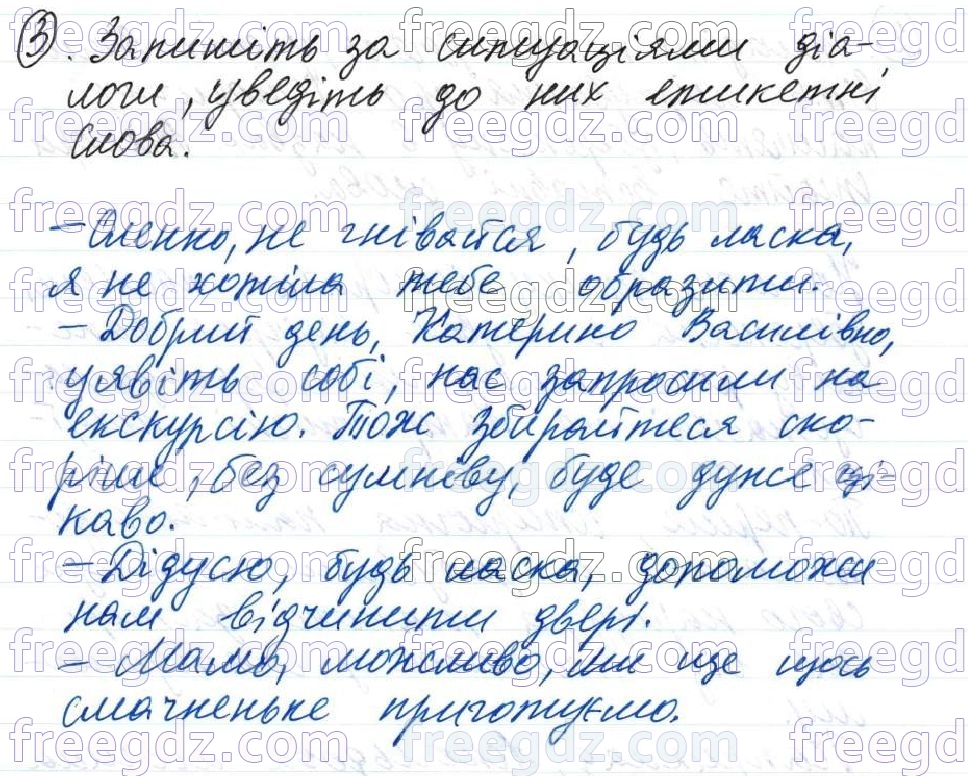 3. Запишіть за ситуаціями діа-
логи, уведіть до них етикетні
слова.
– Оленко, не гнівайся, будь ласка,
я не хотіла тебе образити.
– Добрий день, Катерино Василівно,
уявіть собі, нас запросили на
екскурсію. Тож збирайтеся ско-
ріше, без сумніву, буде дуже ці-
каво.
– Дідусю, будь ласка, допоможи
нам відчинити двері.
– Мамо, можливо, ми ще щось
смачненьке приготуємо.
freegdz.com